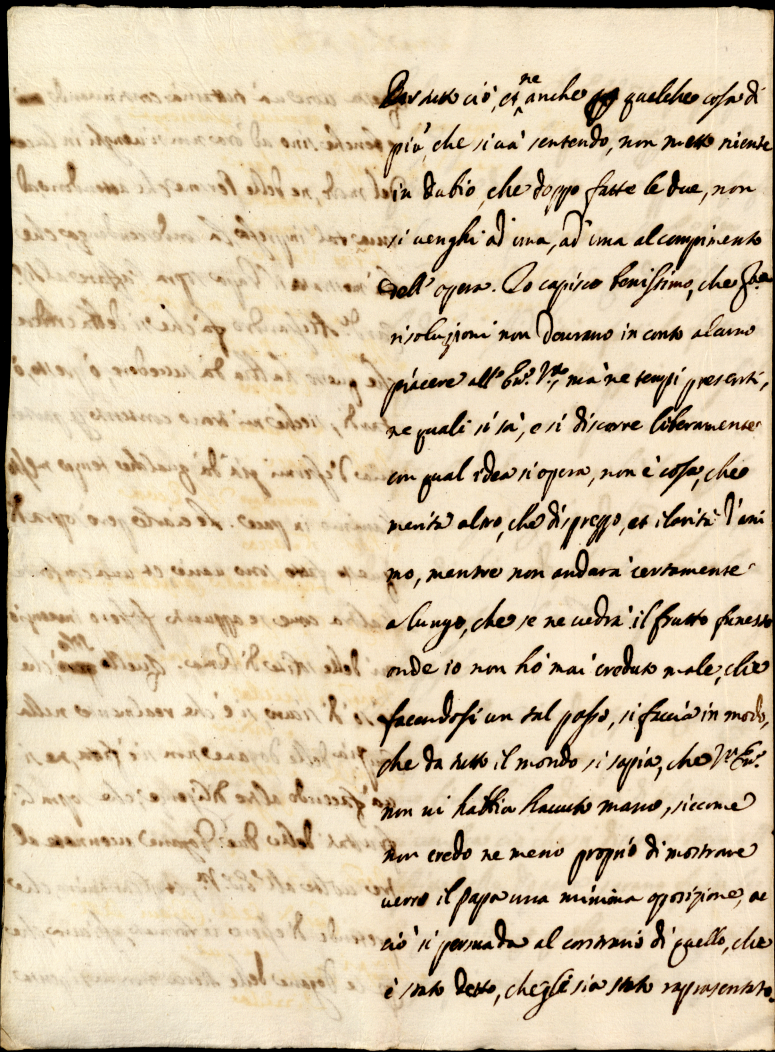 Per tutto ciò, et ne anche qualche cosa di
più, che si và sentendo, non metto niente
in dubio, che doppo fatte le due, non
si venghi ad una, ad una al compimento
dell'opera. Io capisco benissimo, che
risoluzioni non devrano in conto alcuno
piacere all' Em. V., mà ne tempi presenti,
ne quali si sà, e si discorre liberamente
con qual idea si opera, non è cosa, che
merita altro, che disprezzo, et ilarità d'ani
mo, mentre non andarà certamente
a lungo, che se ne vedrà il frutto funesto
onde io non hò mai creduto male, che
facendosi un tal passo, si faccia in modo,
che da tutto il mondo si sapia, che V. Em.
non vi habbia havuto mano, siccome
non credo ne meno proprio di mostrare
verso il Papa una minima opposizione, ac
ciò si persuada al contrario di quello, che
è stato detto, che gli sia stato rapresentato.